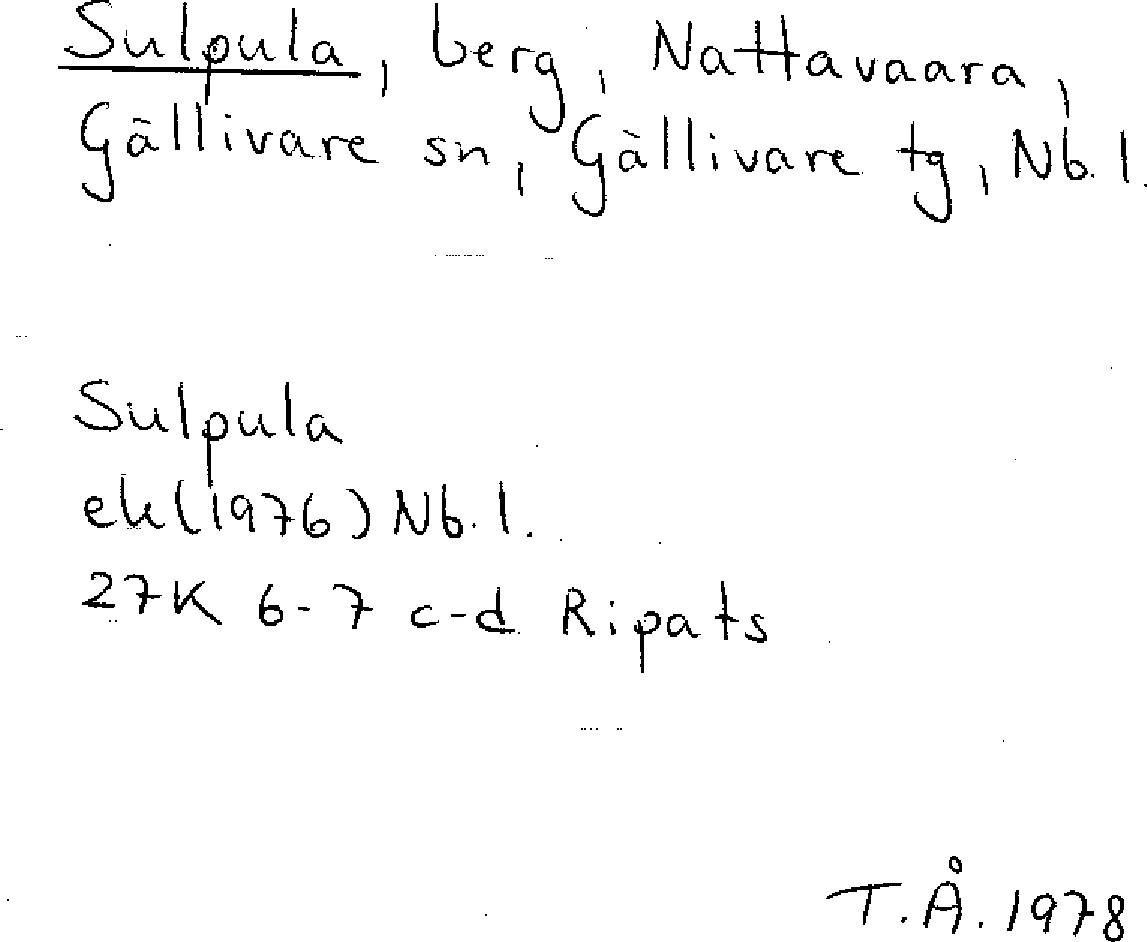 Sulpula, berg, Nattavaara,
Gällivare sn, Gällivare tg, Nb. l.
Sulpula
ek (1976) Nb. l.
27K 6-7 c-d Ripats
T.Å. 1978